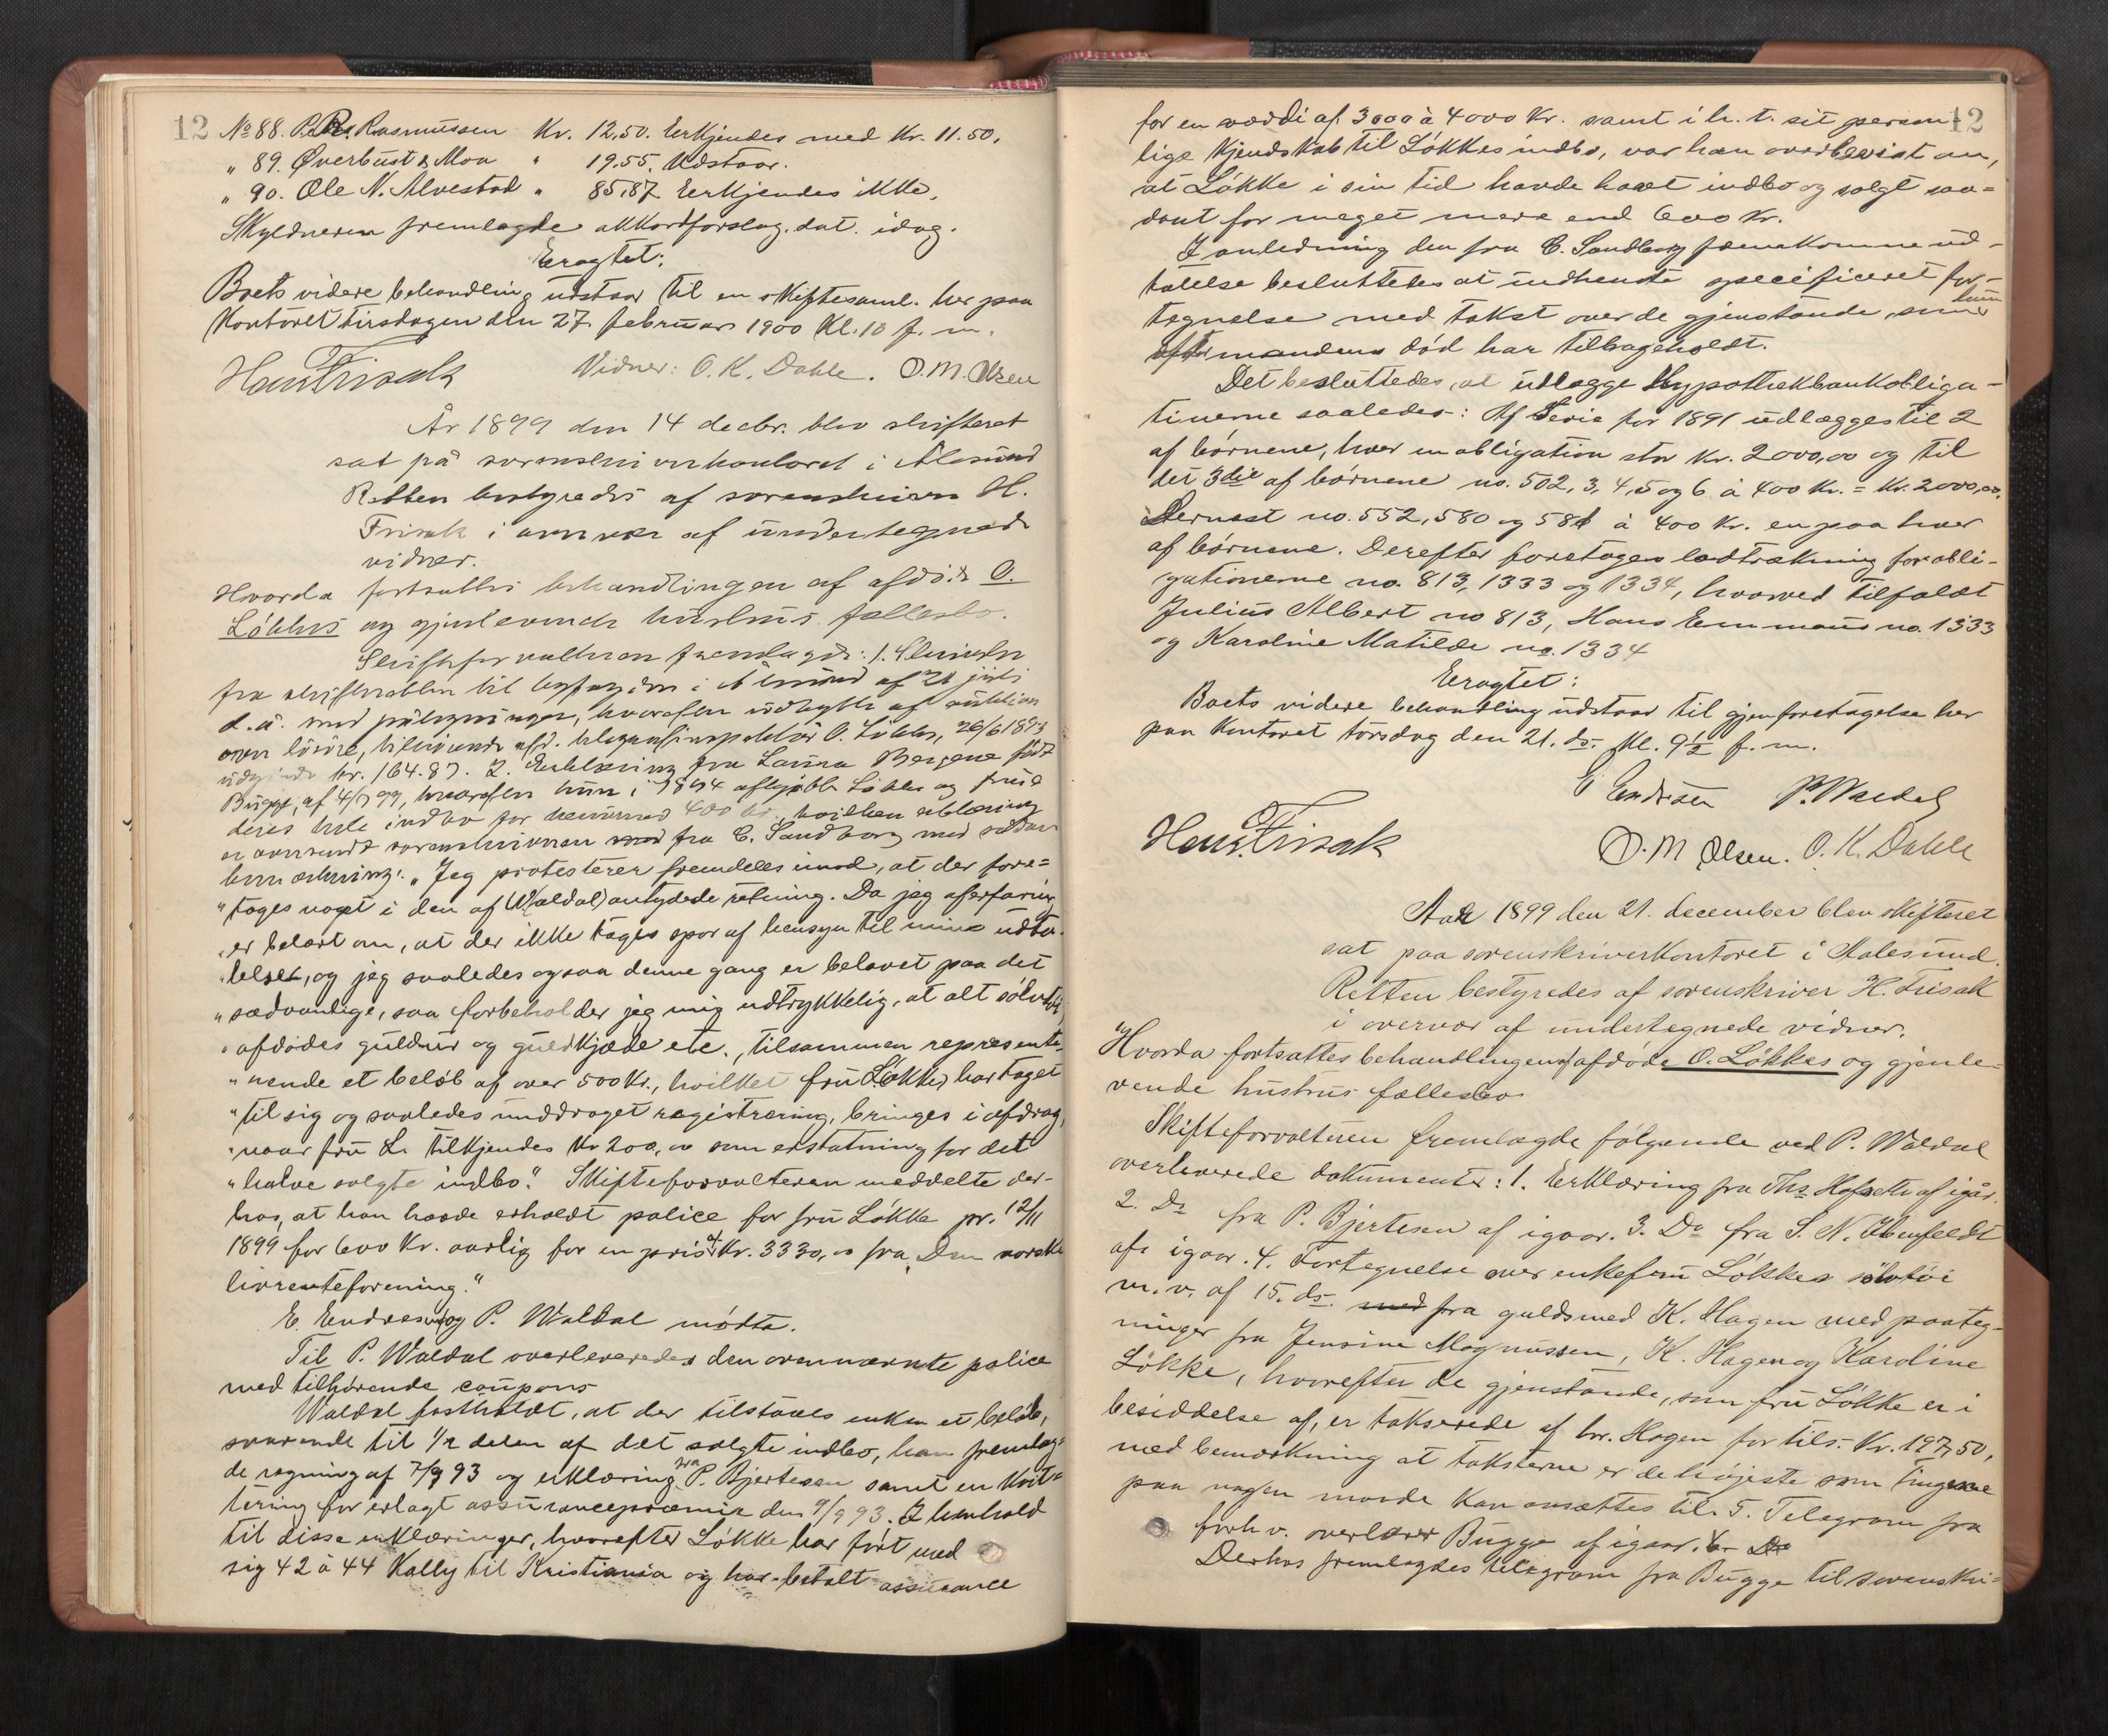 12 No 88. P. R. Rasmussen Kr. 12.50. Erkjendes med Kr. 11.50.
" 89. Øverbust & Moa " 19.55. Udstaar.
" 90. Ole N. Alvestad " 85.87. Erkjendes ikke.
Skyldneren fremlagde akkordforslag. dat. idag.
Eragtet:
Boets videre behandling udstaar til en skiftesaml. her paa
Kontoret tirsdagen den 27. februar 1900 Kl. 10 f. m.
Hans Frisak Vidner: O. K. Dahle. O. M. Olsen
År 1899 den 14 decbr. blev skifteret
sat på sorenskriverkontoret i Ålesund
Retten bestyredes af sorenskriver H.
Frisak i overvær af undertegnede
vidner.
Hvorda fortsattes behandlingen af afdøde O.
Løkkes og gjenlevende hustrus fællesbo.
Skifteforvalteren fremlagde: 1. Skrivelse
fra skifteretten til byfogden i Ålesund af 21 juli
d. å. med påtegninger, hvorefter udbytte af auktion
over løsøre, tilhørende afd. telegrafinspektør O. Løkke, 26/6 1893
udgjorde kr. 164.87. 2. Erklæring fra Laura Bergene født
Bugge, af 4/7 99, hvorefter hun i 1894 afkjøbte Løkke og frue
deres hele indbo for henimod 400 kr., hvilken erklæring
er oversendt sorenskriveren fra C. Sandborg med sådan
bemærkning: "Jeg protesterer fremdeles imod, at der fore=
" tages noget i den af (Waldal) antydede retning. Da jeg af erfaring
" er belært om, at der ikke tages spor af hensyn til mine udta-
" lelser, og jeg saaledes ogsaa denne gang er belavet paa det
" sædvanlige, saa forbeholder jeg mig udtrykkelig, at alt sølvtøi,
" afdødes guldur og guldkjæde etc., tilsammen represente-
" rende et beløb af over 500 Kr., hvilket fru (Løkke) har taget
" til sig og saaledes unddraget registrering, bringes i afdrag,
" naar fru L. tilkjendes Kr 200,00 som erstatning for det
" halve solgte indbo." Skifteforvalteren meddelte der-
hos, at han havde erholdt police for fru Løkke pr. 12/11
1899 for 600 Kr. aarlig for en pris af Kr. 3330,00 fra "Den norske
livrenteforening."
E. Endresen og P. Waldal mødte.
Til P. Waldal overleveredes den ovennævnte police
med tilhørende coupons
Waldal fastholdt, at der tilstaaes enken et beløb,
svarende til 1/2 delen af det solgte indbo, han fremlag=
de regning af 7/9 93 og erklæring fra P. Bjertesen samt en Kvit=
tering for erlagt assurancepræmie den 9/9 93. I henhold
til disse erklæringer, hvorefter Løkke har ført med
sig 42 à 44 Kolly til Kristiania og har betalt assurance
12
for en værdi af 3000 à 4000 Kr. samt i h. t. sit person-
lige Kjendskab til Løkkes indbo, var han overbevist om,
at Løkke i sin tid havde havt indbo og solgt saa=
dant for meget mere end 600 Kr.
I anledning den fra C. Sandborg fremkomne ud-
talelse besluttedes at indhente specificeret for-
tegnelse med takst over de gjenstande, som hun
efter mandens død har tilbageholdt.
Det besluttedes, at udlægge Hypothekbankobliga-
tinerne saaledes: Af Serie for 1891 udlægges til 2
af børnene, hver en obligation stor Kr. 2000,00 og til
det 3die af børnene no. 502, 3, 4, 5 og 6 à 400 Kr. = Kr. 2000,00.
Dernæst no. 552, 580 og 581 à 400 Kr. en paa hver
af børnene. Derefter foretoges lodtrækning for obli-
gationerne no. 813, 1333 og 1334, hvorved tilfaldt
Julius Albert no 813, Hans Emmaus no. 1333
og Karoline Matilde no. 1334
Eragtet:
Boets videre behandling udstaar til gjenforetagelse her
paa Kontoret torsdag den 21. ds. Kl. 9 1/2 f. m.
E Endresen P. Waldal
Hans Frisak
O. M Olsen. O. K. Dahle
Aar 1899 den 21. december blev skifteret
sat paa sorenskriverkontoret i Aalesund.
Retten bestyredes af sorenskriver H. Frisak
i overvær af undertegnede vidner.
Hvorda fortsattes behandlingen af afdøde O. Løkkes og gjenle-
vende hustrus fællesbo
Skifteforvalteren fremlagde følgende ved P. Waldal
overleverede dokumenter: 1. Erklæring fra Ths. af igår.
2. Do fra P. Bjertesen af igaar. 3. Do fra S. N.
af igaar. 4. Fortegnelse over enkefru Løkkes sølvtøi
m. v. af 15. ds. med fra guldsmed K. Hagen med paateg-
ninger fra Jensine Magnussen, K. Hagen og Karoline
Løkke, hvorefter de gjenstande, som fru Løkke er i
besiddelse af, er takserede af hr. Hagen for tils. Kr. 197,50,
med bemærkning at taksterne er de høieste som tingene
paa nogen maade kan ansættes til. 5. Telegram fra
forh v. overlærer Bugge af igaar. 6. Do
Derhos fremlagdes telegram fra Bugge til sorenskri=